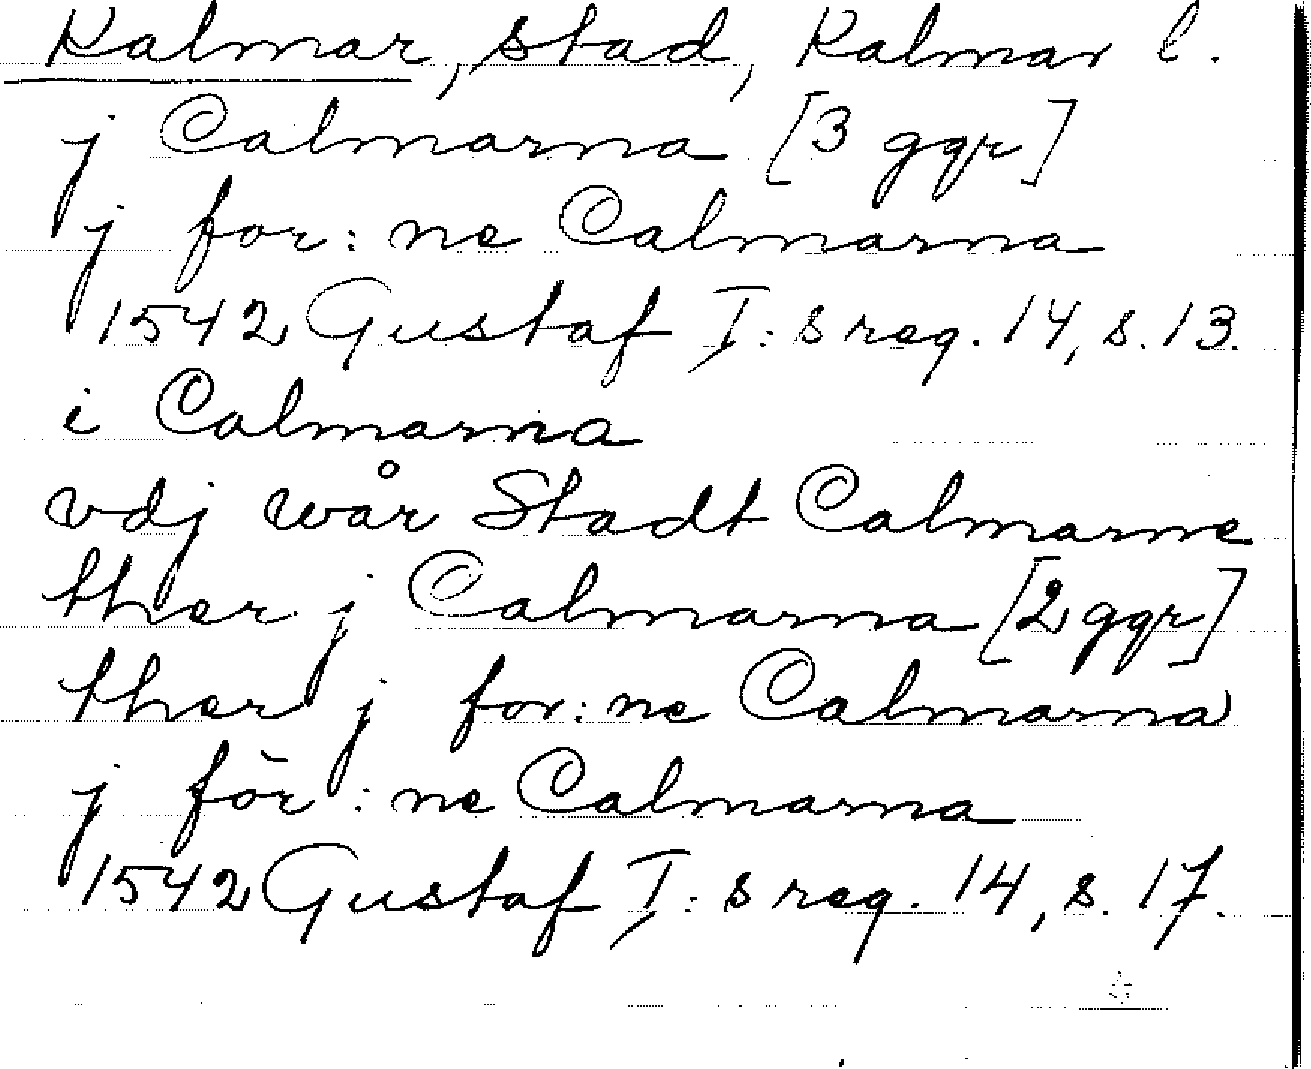 Kalmar, stad, Kalmar l.
j Calmarna [3 ggr]
j for: ne Calmarna
1542 Gustaf I: s reg. 14, s. 13.
i Calmarna
vdj wår Stadt Calmarne
ther j Calmarna [2 ggr]
ther j for: ne Calmarna
j för: ne Calmarna
1542 Gustaf I: s reg. 14, s. 17.